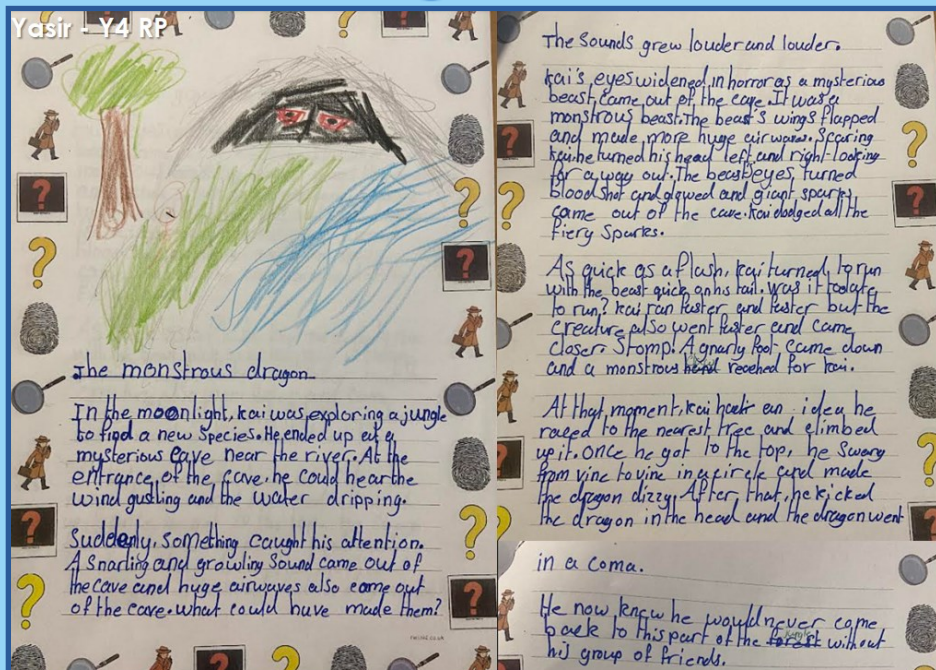 Yasir - Y4 RP
The monstrous dragon
In the moonlight, kai was exploring a jungle
to find a new species. He ended up at a
mysterious cave near the river. At the
entrance of the cave, he could hear the
wind gustling and the water dripping.
Suddenly, something caught his attention.
A snarling and growling sound came out of
the cave and huge airwaves also come out
of the cave. what could have made them?
The sounds grew louder and louder.
kai's eyes widened in horror as a mysterious
beast came out of the cave. It was a
monstrous beast. The beast's wings flapped
and made more huge airwaves. Scaring
kai. he turned his head left and right looking
for a way out. The beast eyes turned
bloodshot and glowed and giant sparks
came out of the cave. kai dodged all the
fiery sparks.
As quick as a flash, kai turned to run
with the beast quick on his tail. was it too late
to run? kai ran faster and faster but the
creature also went faster and came
closer. Stomp! A gnarly foot came down
and a monstrous hand reached for kai.
At that moment, kai had an idea he
raced to the nearest tree and climbed
up it. Once he got to the top, he swung
from vine to vine in a circle and made
the dragon dizzy. After that, he kicked
the dragon in the head and the dragon went
in a coma.
He now knew he would never come
back to this part of the forest jungle without
his group of friends.